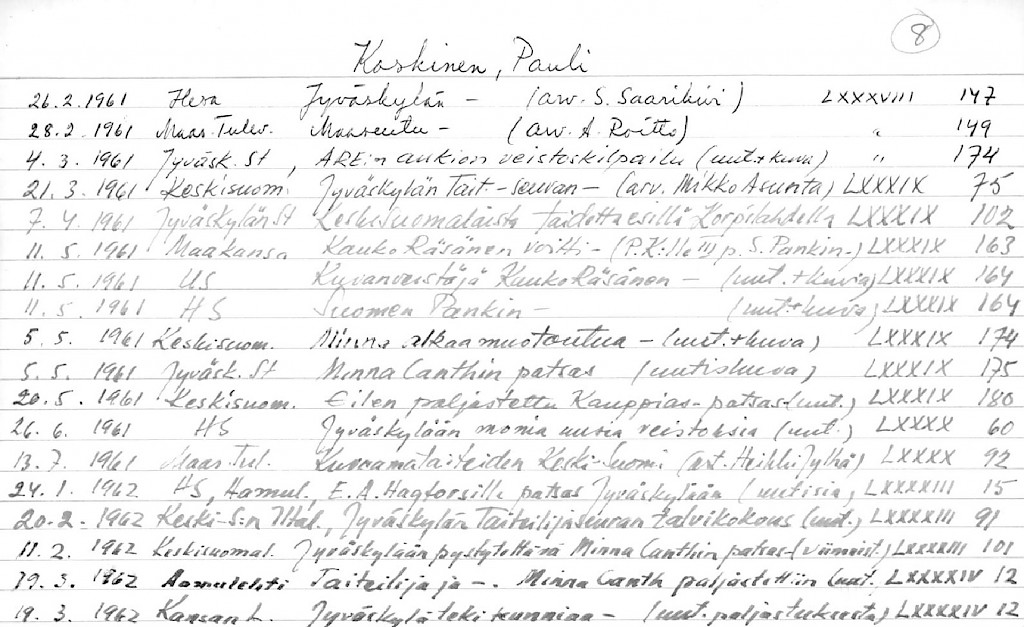 8
Koskinen, Pauli
26.2.1961 Hesa Jyväskylän – (arv. S. Saarikivi) LXXXVIII 147
28.2 1961 Maas. Tulev. Maaseutu – (arv. A. Roitto) " 149
4. 3. 1961 Jyväsk. St, ARE:n aukion veistoskilpailu (uut.+kuva) " 174
21. 3. 1961 Keskisuom. Jyväskylän Tait.-seuran – (arv. Mikko Asunta) LXXXIX 75
7. 4. 1961 Jyväskylän St Keskisuomalaista taidetta esillä Korpilahdella LXXXIX 102
11. 5. 1961 Maakansa Kauko Räsänen voitti – (P.K:lle III p. S. Pankin-) LXXXIX 163
11. 5. 1961 US Kuvanveistäjä Kauko Räsänen – (uut.+kuvia) LXXXIX 164
11. 5. 1961 HS Suomen Pankin – (uut+kuva) LXXXIX 164
5. 5. 1961 Keskisuom. Minna alkaa muotoutua – (uut.+kuva) LXXXIX 174
5. 5. 1961 Jyväsk. St Minna Canthin patsas (uutiskuva) LXXXIX 175
20. 5. 1961 Keskisuom. Eilen paljastettu Kauppias-patsas (uut.) LXXXIX 180
26. 6. 1961 HS Jyväskylään monia uusia veistoksia (uut.) LXXXX 60
13. 7. 1961 Maas. Tul. Kuvaamataiteiden Keski-Suomi (art. Heikki Jylhä) LXXXX 92
24. 1. 1962 HS, Hämul., E. A. Hagforsille patsas Jyväskylään (uutisia, LXXXXIII 15
20.2. 1962 Keski-S:n Iltal., Jyväskylän Taiteilijaseuran talvikokous (uut.) LXXXXIII 91
11. 2. 1962 Keskisuomal. Jyväskylään pystytettävä Minna Canthin patsas (viimeist.) LXXXXIII 101
19. 3. 1962 Aamulehti Taiteilija ja –. Minna Canth paljastettiin (uut. LXXXXIV 12
19. 3. 1962 Kansan L. Jyväskylä teki kunniaa – (uut. paljastuksesta) LXXXXIV 12